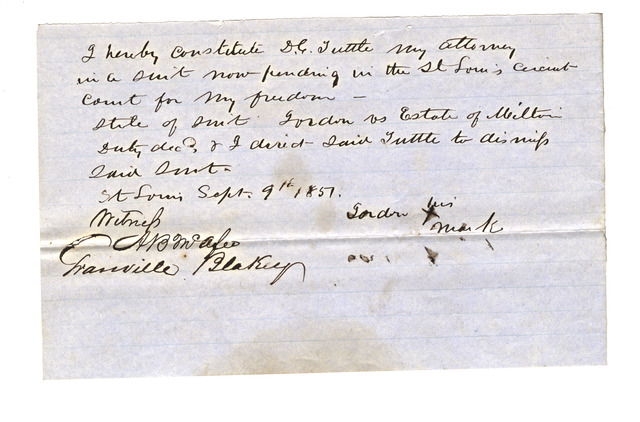 I hereby constitute D.C. Tuttle my attorney
in a suit now pending in the St Louis circuit
court for my freedom —
stile of suit Gordon vs Estate of Milton
Duty decd, & I direct said Tuttle to dismiss
said suit.
St Louis Sept. 9th 1851.
Witness
Gordon his X mark
A B McAfee
Granville Blakey